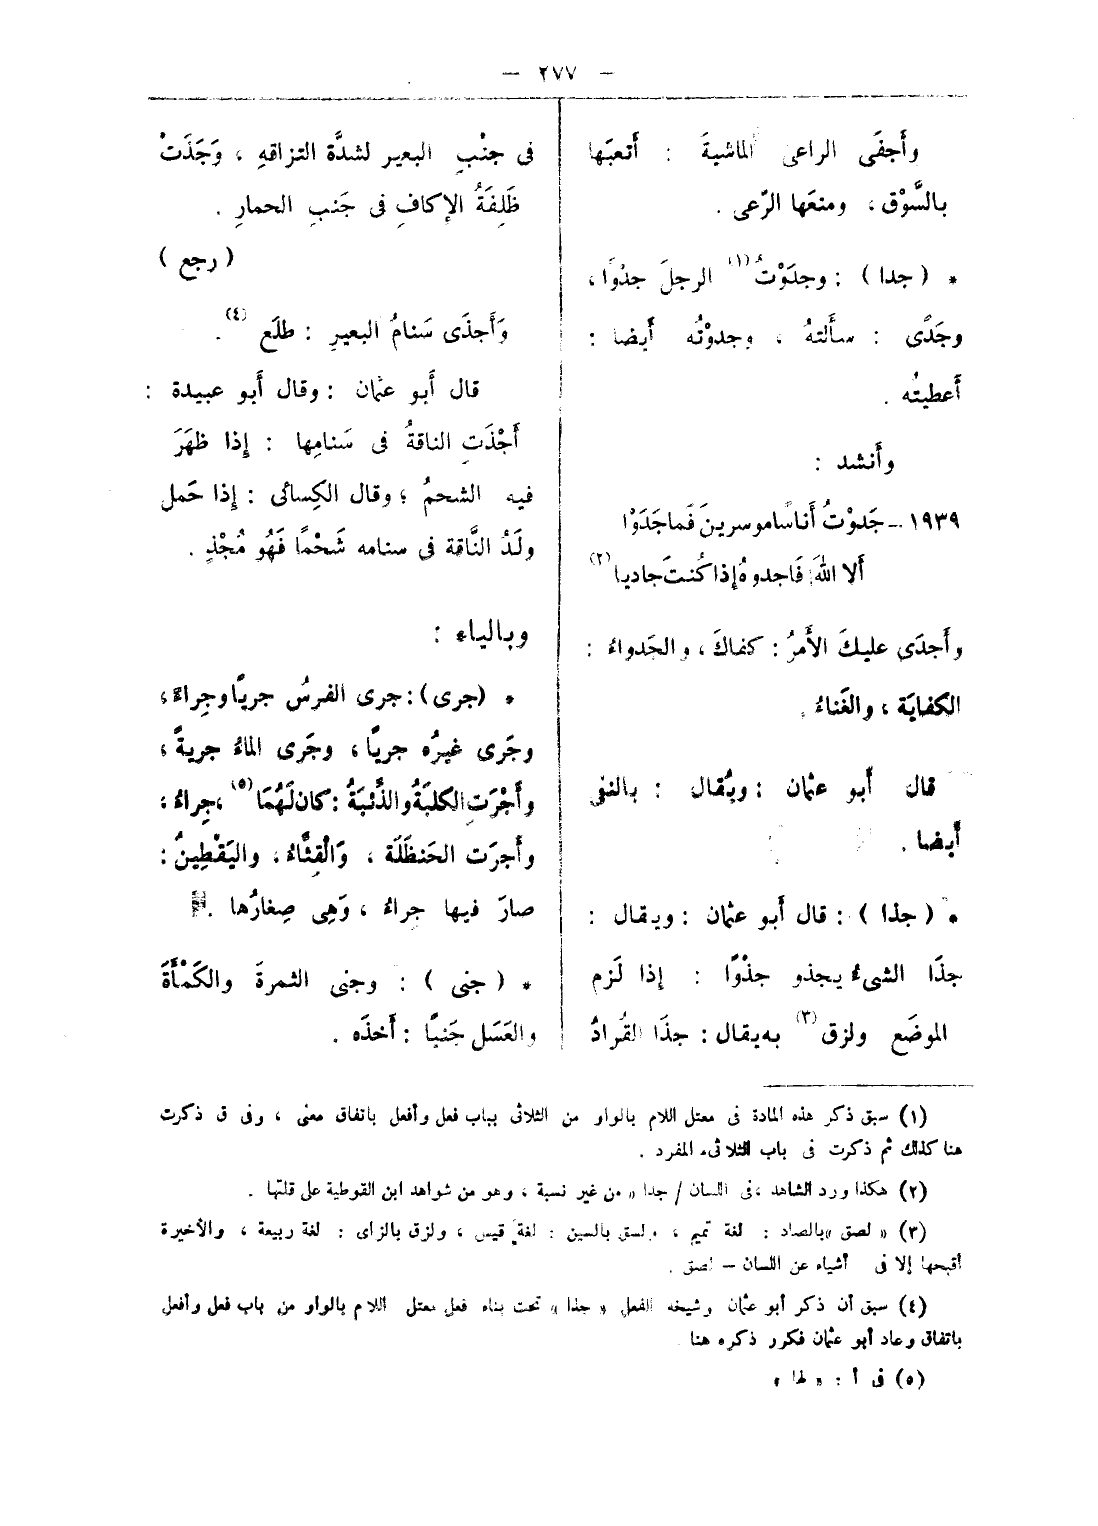 — ٢٧٧ —
وأَجفَى الراعى الماشيةَ : أَتعبَها
بالسَّوْق ، ومنعَها الرّعى .
* ( جدا ) : وجدَوْتُ (١) الرجلَ جدْوًا ،
وجَدًى : سأَلتهُ ، وجدوْتُه أَيضا :
أَعطيتُه .
وأَنشد :
١٩٣٩ – جَدوْتُ أُناسًا موسرينَ فَما جَدَوْا
أَلا اللهَ فَاجدوهُ إذا كُنتَ جاديا (٢)
وأَجدَى عليكَ الأَمرُ : كفاكَ ، والجَدواءُ :
الكفايَة ، والغَناءُ .
قال أَبو عثمان : ويُقال : بالنفى
أَيضا .
* ( جذا ) : قال أَبو عثمان : ويقال :
جذَا الشىءُ يجذو جذْوًا : إذا لَزم
الموضَع ولزق (٣) به يقال : جذَا القُرادُ
فى جنْبِ البعير لشدَّة التزاقهِ ، وَجَذَتْ
ظَلِفَةُ الإكافِ فى جَنبِ الحمارِ .
( رجع )
وَأَجذَى سَنامُ البعيرِ : طلَع (٤) .
قال أَبو عثمان : وقال أَبو عبيدة :
أَجْذَتِ الناقةُ فى سَنامِها : إذا ظهَرَ
فيه الشحمُ ؛ وقال الكِسائى : إذا حَمل
ولَدُ النَّاقة فى سنامه شَحْمًا فَهُو مُجْذٍ .
وبالياء :
* (جرى) : جرى الفرسُ جريًا وجِراءً ،
وجَرى غيرُه جريًا ، وجَرى الماءُ جريةً ،
وأَجْرَتِ الكلبَةُ والذِّئبَةُ : كان لَهُمَا (٥) ، جِراءُ ،
وأجرَت الحَنظَلَة ، وَالْقِثَّاءُ ، واليَقْطِينُ :
صارَ فيها جراءُ ، وَهِى صِغارُها .
* ( جنى ) : وجنى الثمرةَ والكَمْأَةَ
والعَسَل جَنيًا : أَخذَه .
(١) سبق ذكر هذه المادة فى معتل اللام بالواو من الثلاثى بباب فعل وأفعل باتفاق معنى ، وفى ق ذكرت
هنا كذلك ثم ذكرت فى باب الثلاثىء المفرد .
(٢) هكذا ورد الشاهد ، فى اللسان / جدا « من غير نسبة ، وهو من شواهد ابن القوطية على قلتها .
(٣) « لصق » بالصاد : لغة تميم ، ولسق بالسين : لغة قيس ، ولزق بالزاى : لغة ربيعة ، والأخيرة
أقبحها إلا فى أشياء عن اللسان – لصق .
(٤) سبق أن ذكر أبو عثمان وشيخه الفعل « جذا » تحت بناء فعل معتل اللام بالواو من باب فعل وأفعل
باتفاق وعاد أبو عثمان فكرر ذكره هنا
(٥) فى أ : « لها »